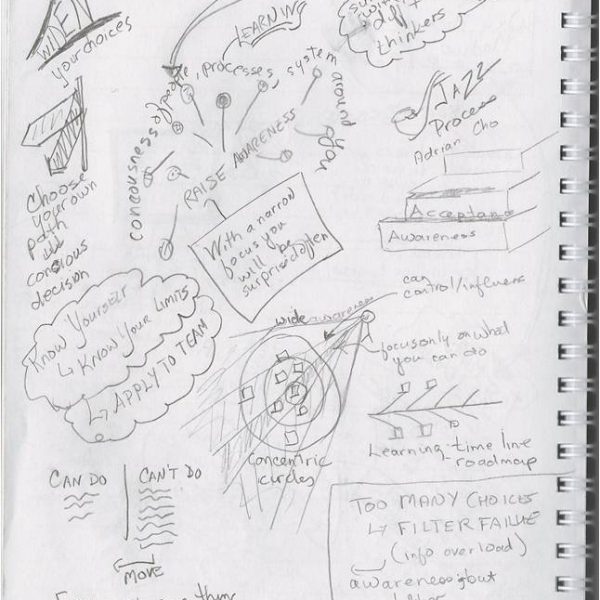 WIDEN
your choices
LEARNING
diff
thinkers
JAZZ
Process
Adrian Cho
conciousness of people, processes, system around you
RAISE AWARENESS
Choose
your own
path
conscious
decision
With a narrow
focus you
will be
surprised often
Acceptance
Awareness
Know Yourself
↳ Know Your Limits
↳ APPLY TO TEAM
can
control/influence
wide awareness
focus only on what
you can do
concentric
circles
Learning time line
- roadmap
CAN DO
CAN'T DO
MOVE
TOO MANY CHOICES
↳ FILTER FAILUE
(info overload)
awareness